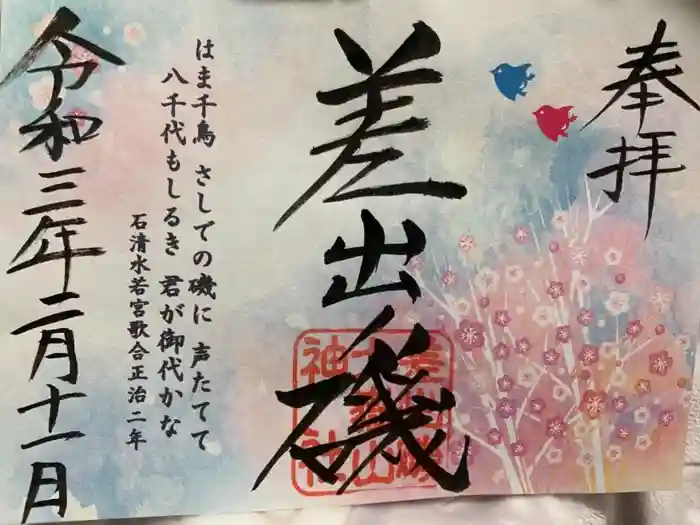 奉拝
差出磯
はま千鳥 さしでの磯に 声たてて
八千代もしるき 君が御代かな
石清水若宮歌合正治二年
令和三年二月十一月